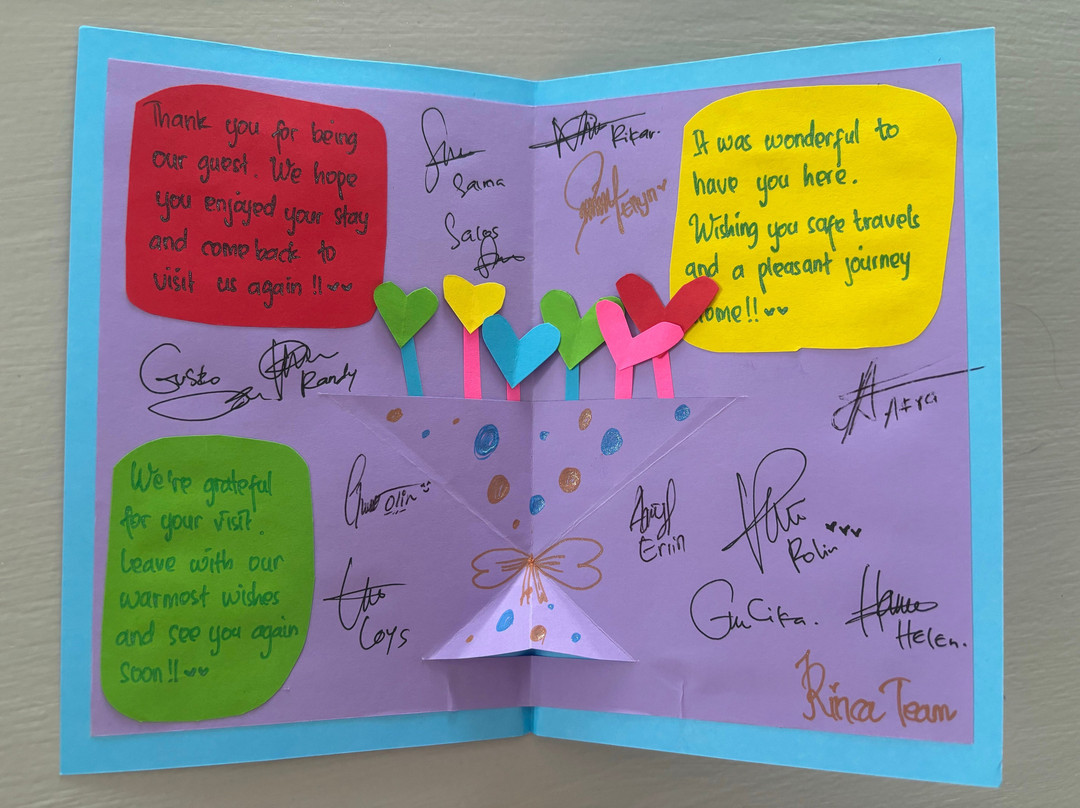 Thank you for being
our guest. We hope
you enjoyed your stay
and come back to
visit us again !!
Salma
Salos
Rikar.
Feryn
It was wonderful to
have you here.
Wishing you safe travels
and a pleasant journey
home!!
Gusto
Randy
Afra
We're grateful
for your visit.
Leave with our
warmest wishes
and see you again
soon!!
Olin
Loys
Eriin
Rolin
Cika.
Helen.
Rinca Team